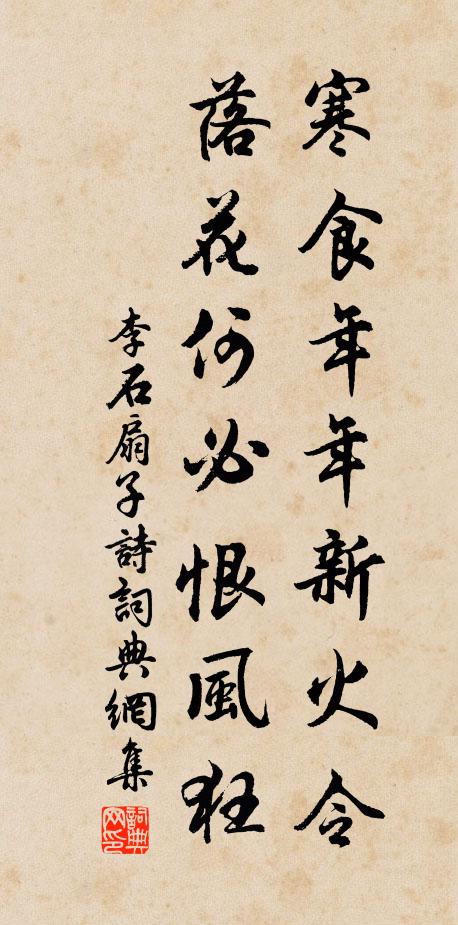 寒食年年新火令
落花何必恨風狂
李石扇子詩詞典網集
詞典网印